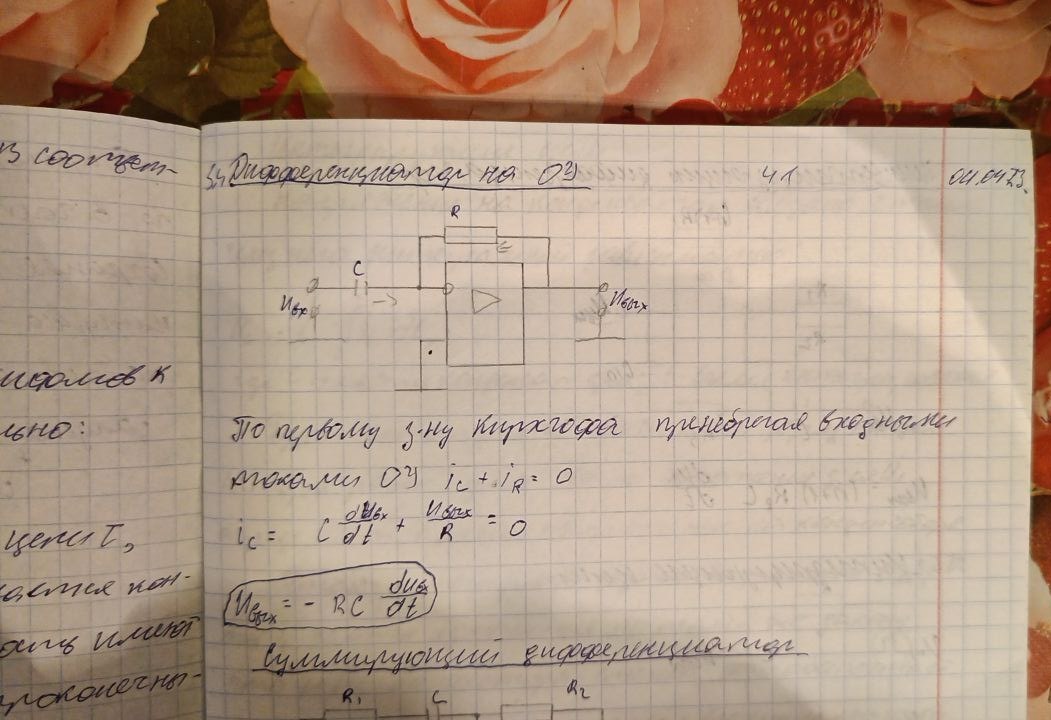 в соответ-
идомов к
льно:
цепи T,
кается кон-
ость имеют
проконечны-
5.4 Дифференциатор на ОУ 41 04.04.23.
R
C
Uвх
Uвых
По первому з-ну Кирхгофа пренебрегая входными
токами ОУ iC + iR = 0
iC = C dUвх/dt + Uвых/R = 0
Uвых = - RC dUвх/dt
Суммирующий дифференциатор
R1 C R2